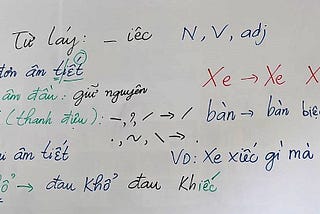 Từ láy: _ iếc N, V, adj
đơn âm tiết
âm đầu: giữ nguyên
Xe → Xe X
(thanh điệu): -, ?, / → /
., ~, \ → .
bàn → bàn
âm tiết
VD: Xe xiếc gì mà
→ đau khổ đau khiếc